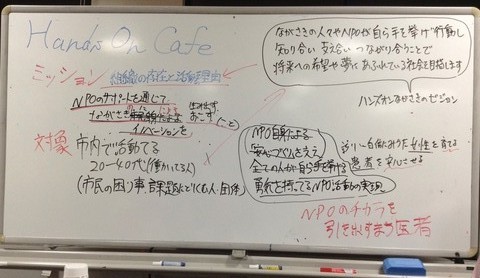 Hands On Cafe
ながさきの人々やNPOが自ら手を挙げ行動し
知り合い 支え合い つながり合うことで
将来への希望や夢にあふれている社会を目指します
ハンズオンながさきのビジョン
ミッション 組織の存在と活動理由
NPOのサポートを通じて
ながさき
生み出す
おこす こと
イノベーションを
対象 市内で活動してる
20〜40代(働いてる人)
(市民の困り事、課題 人・団体)
NPO自身による
全ての人が自ら手を挙げる
勇気を持ってるNPO活動の実現
女性を育てる
患者を安心させる
NPOのチカラを
引き出すまち医者